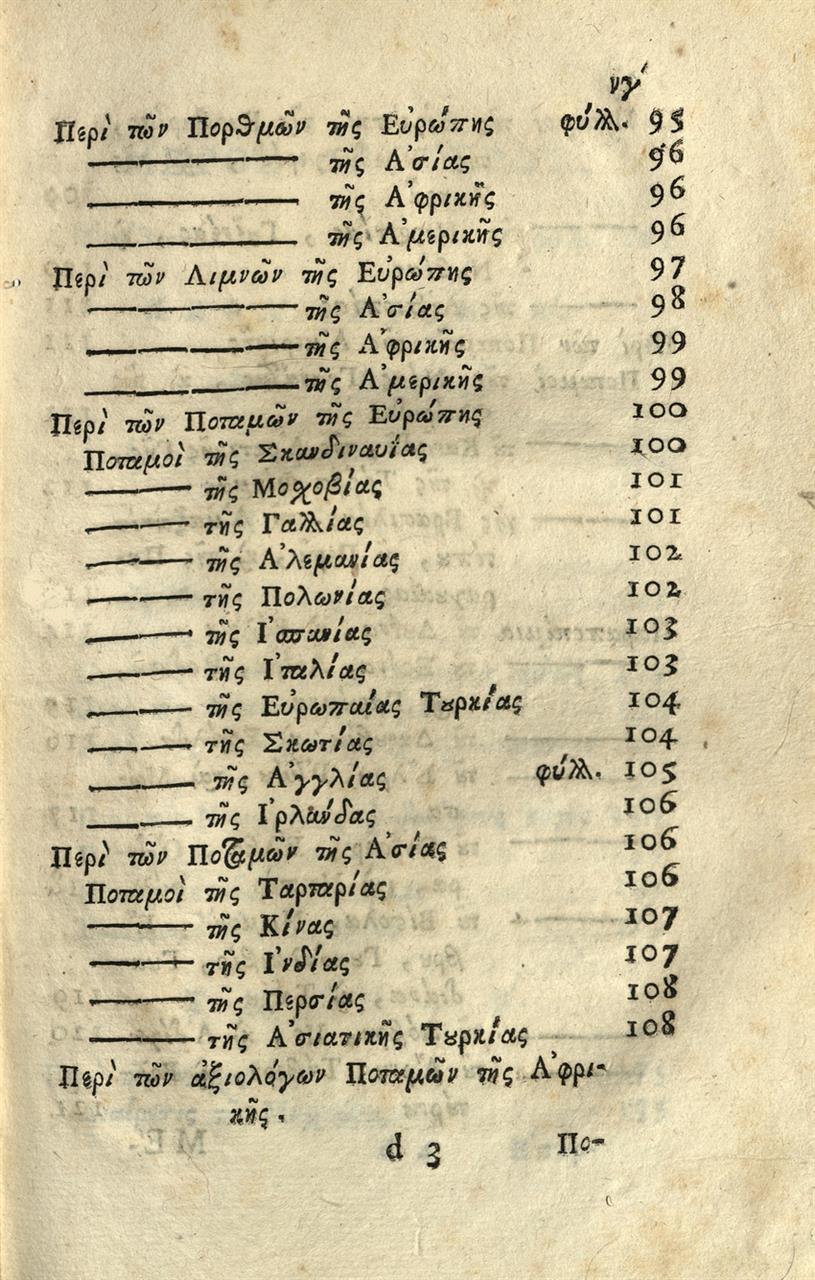 νγ´
Περὶ τῶν Πορθμῶν τῆς Εὐρώπης φύλλ. 95
——— τῆς Ἀσίας 96
——— τῆς Ἀφρικῆς 96
——— τῆς Ἀμερικῆς 96
Περὶ τῶν Λιμνῶν τῆς Εὐρώπης 97
——— τῆς Ἀσίας 98
——— τῆς Ἀφρικῆς 99
——— τῆς Ἀμερικῆς 99
Περὶ τῶν Ποταμῶν τῆς Εὐρώπης 100
Ποταμοὶ τῆς Σκανδιναυΐας 100
——— τῆς Μοχοβίας 101
——— τῆς Γαλλίας 101
——— τῆς Ἀλεμανίας 102
——— τῆς Πολωνίας 102
——— τῆς Ἰσπανίας 103
——— τῆς Ἰταλίας 103
——— τῆς Εὐρωπαίας Τȣρκίας 104
——— τῆς Σκωτίας 104
——— τῆς Ἀγγλίας φύλλ. 105
——— τῆς Ἰρλάνδας 106
Περὶ τῶν Ποταμῶν τῆς Ἀσίας 106
Ποταμοὶ τῆς Ταρταρίας 106
——— τῆς Κίνας 107
——— τῆς Ἰνδίας 107
——— τῆς Περσίας 108
——— τῆς Ἀσιατικῆς Τȣρκίας 108
Περὶ τῶν ἀξιολόγων Ποταμῶν τῆς Ἀφρι-
κῆς.
d 3 Πο-